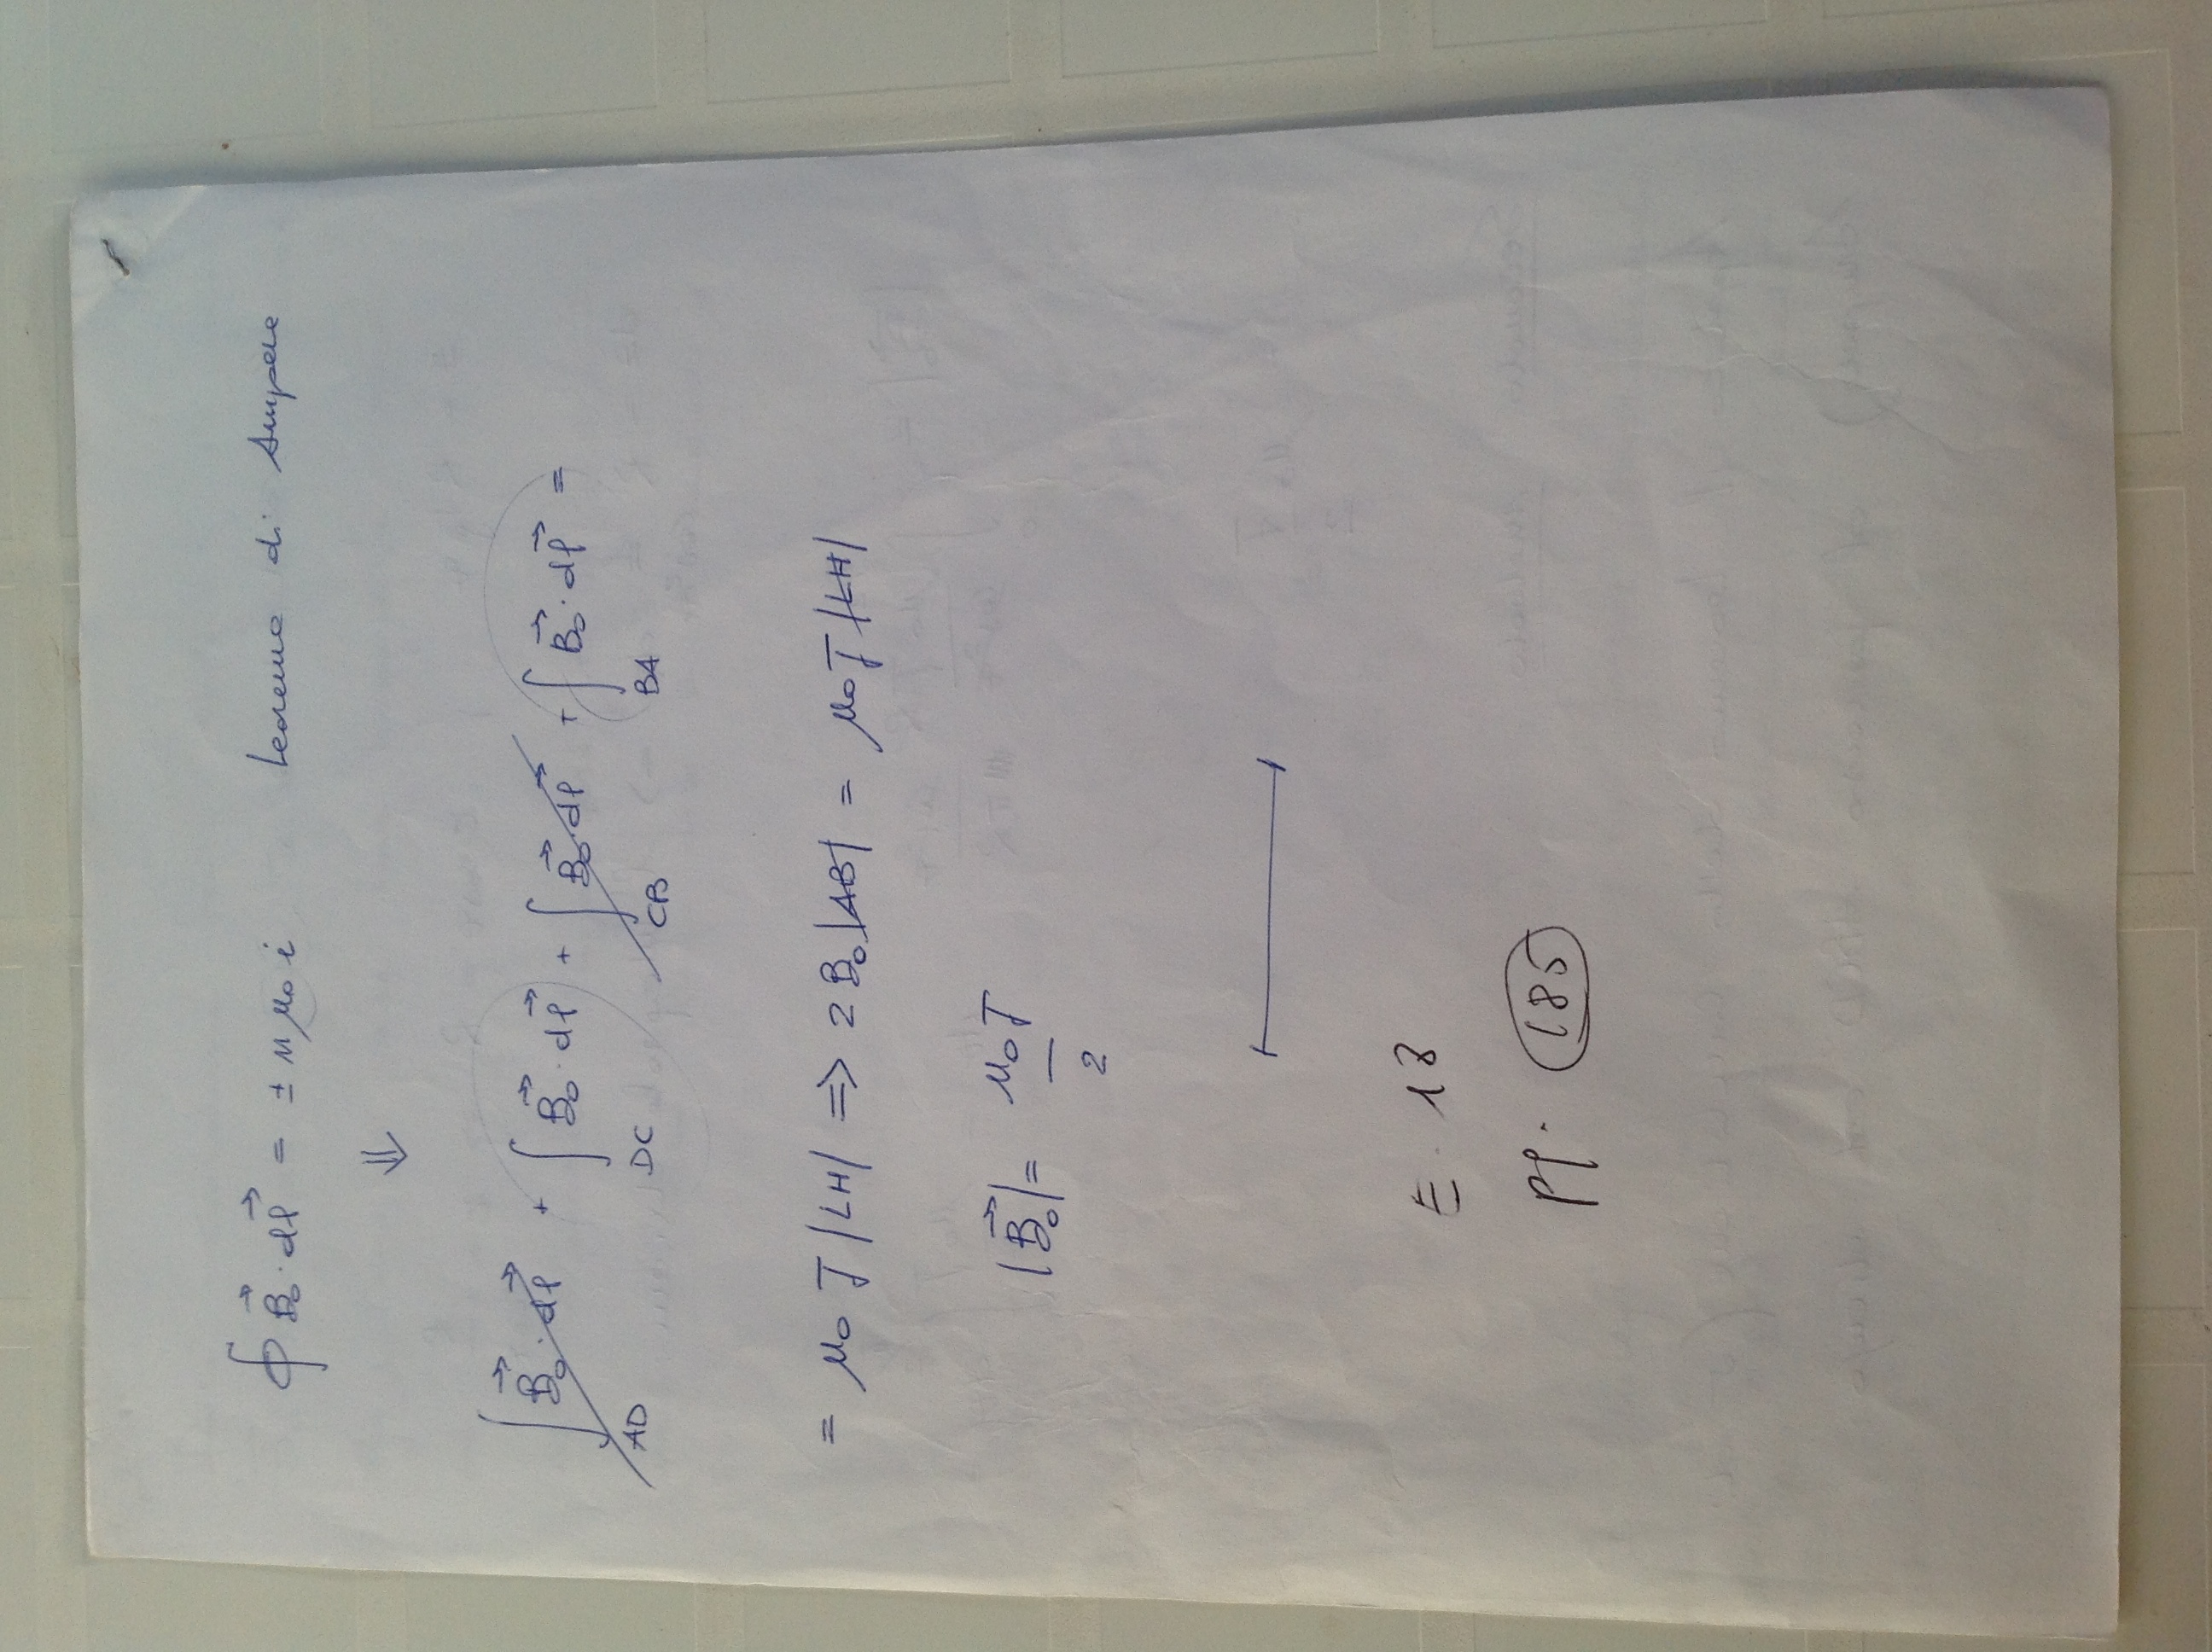 ∮ B⃗₀ · dl⃗ = ± n μ₀ i teorema di Ampere
⇓
∫ B⃗₀ · dl⃗ + ∫ B⃗₀ · dl⃗ + ∫ B⃗₀ · dl⃗ + ∫ B⃗₀ · dl⃗ =
AD DC CB BA
= μ₀ J |LH| ⇒ 2 B₀ |AB| = μ₀ J |LH|
|B⃗₀| = μ₀ J / 2
E. 18
pp. 185